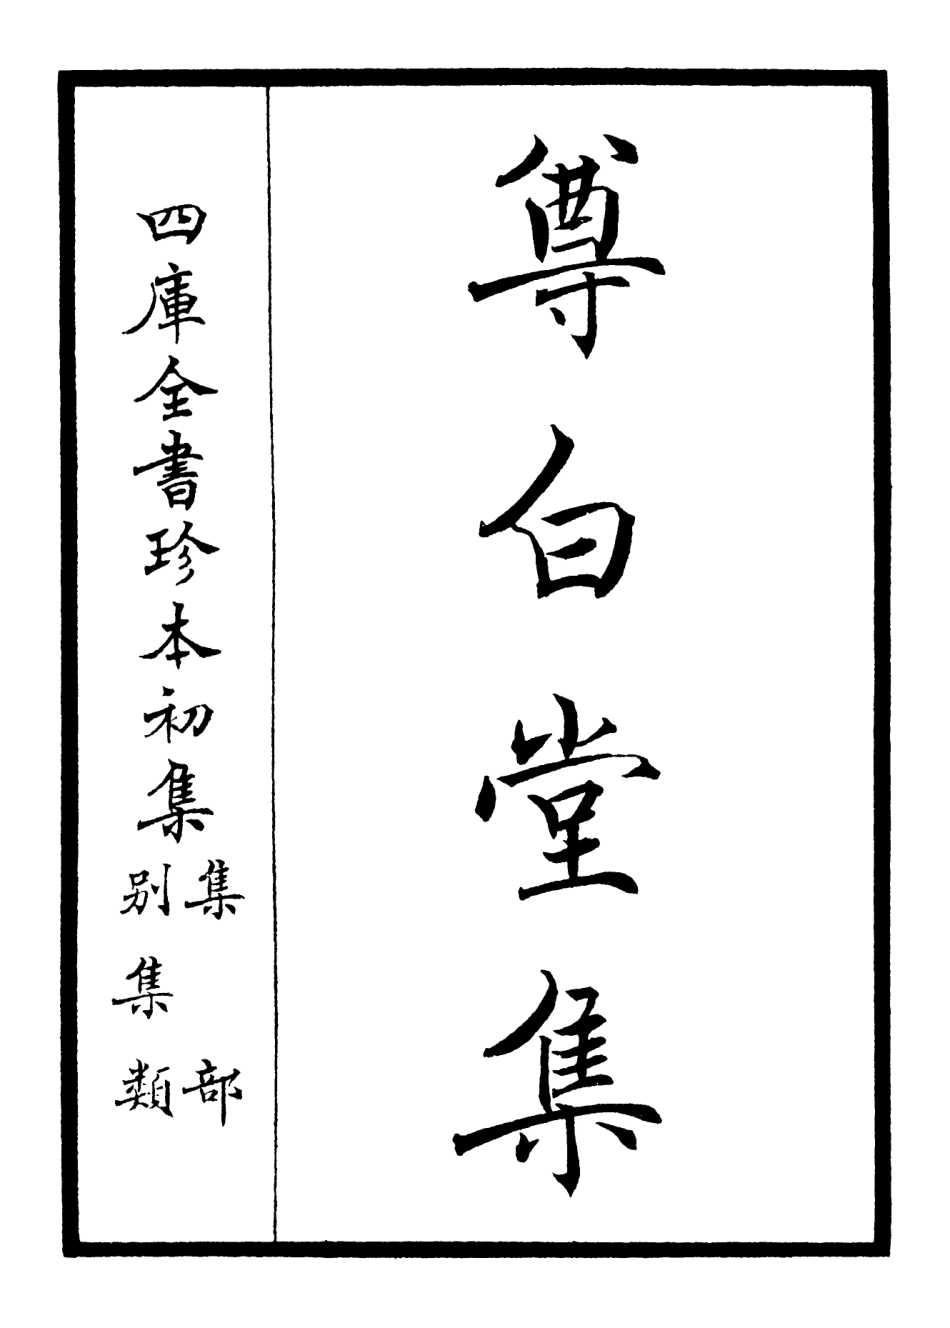 尊白堂集
四庫全書珍本初集
集部
別集類